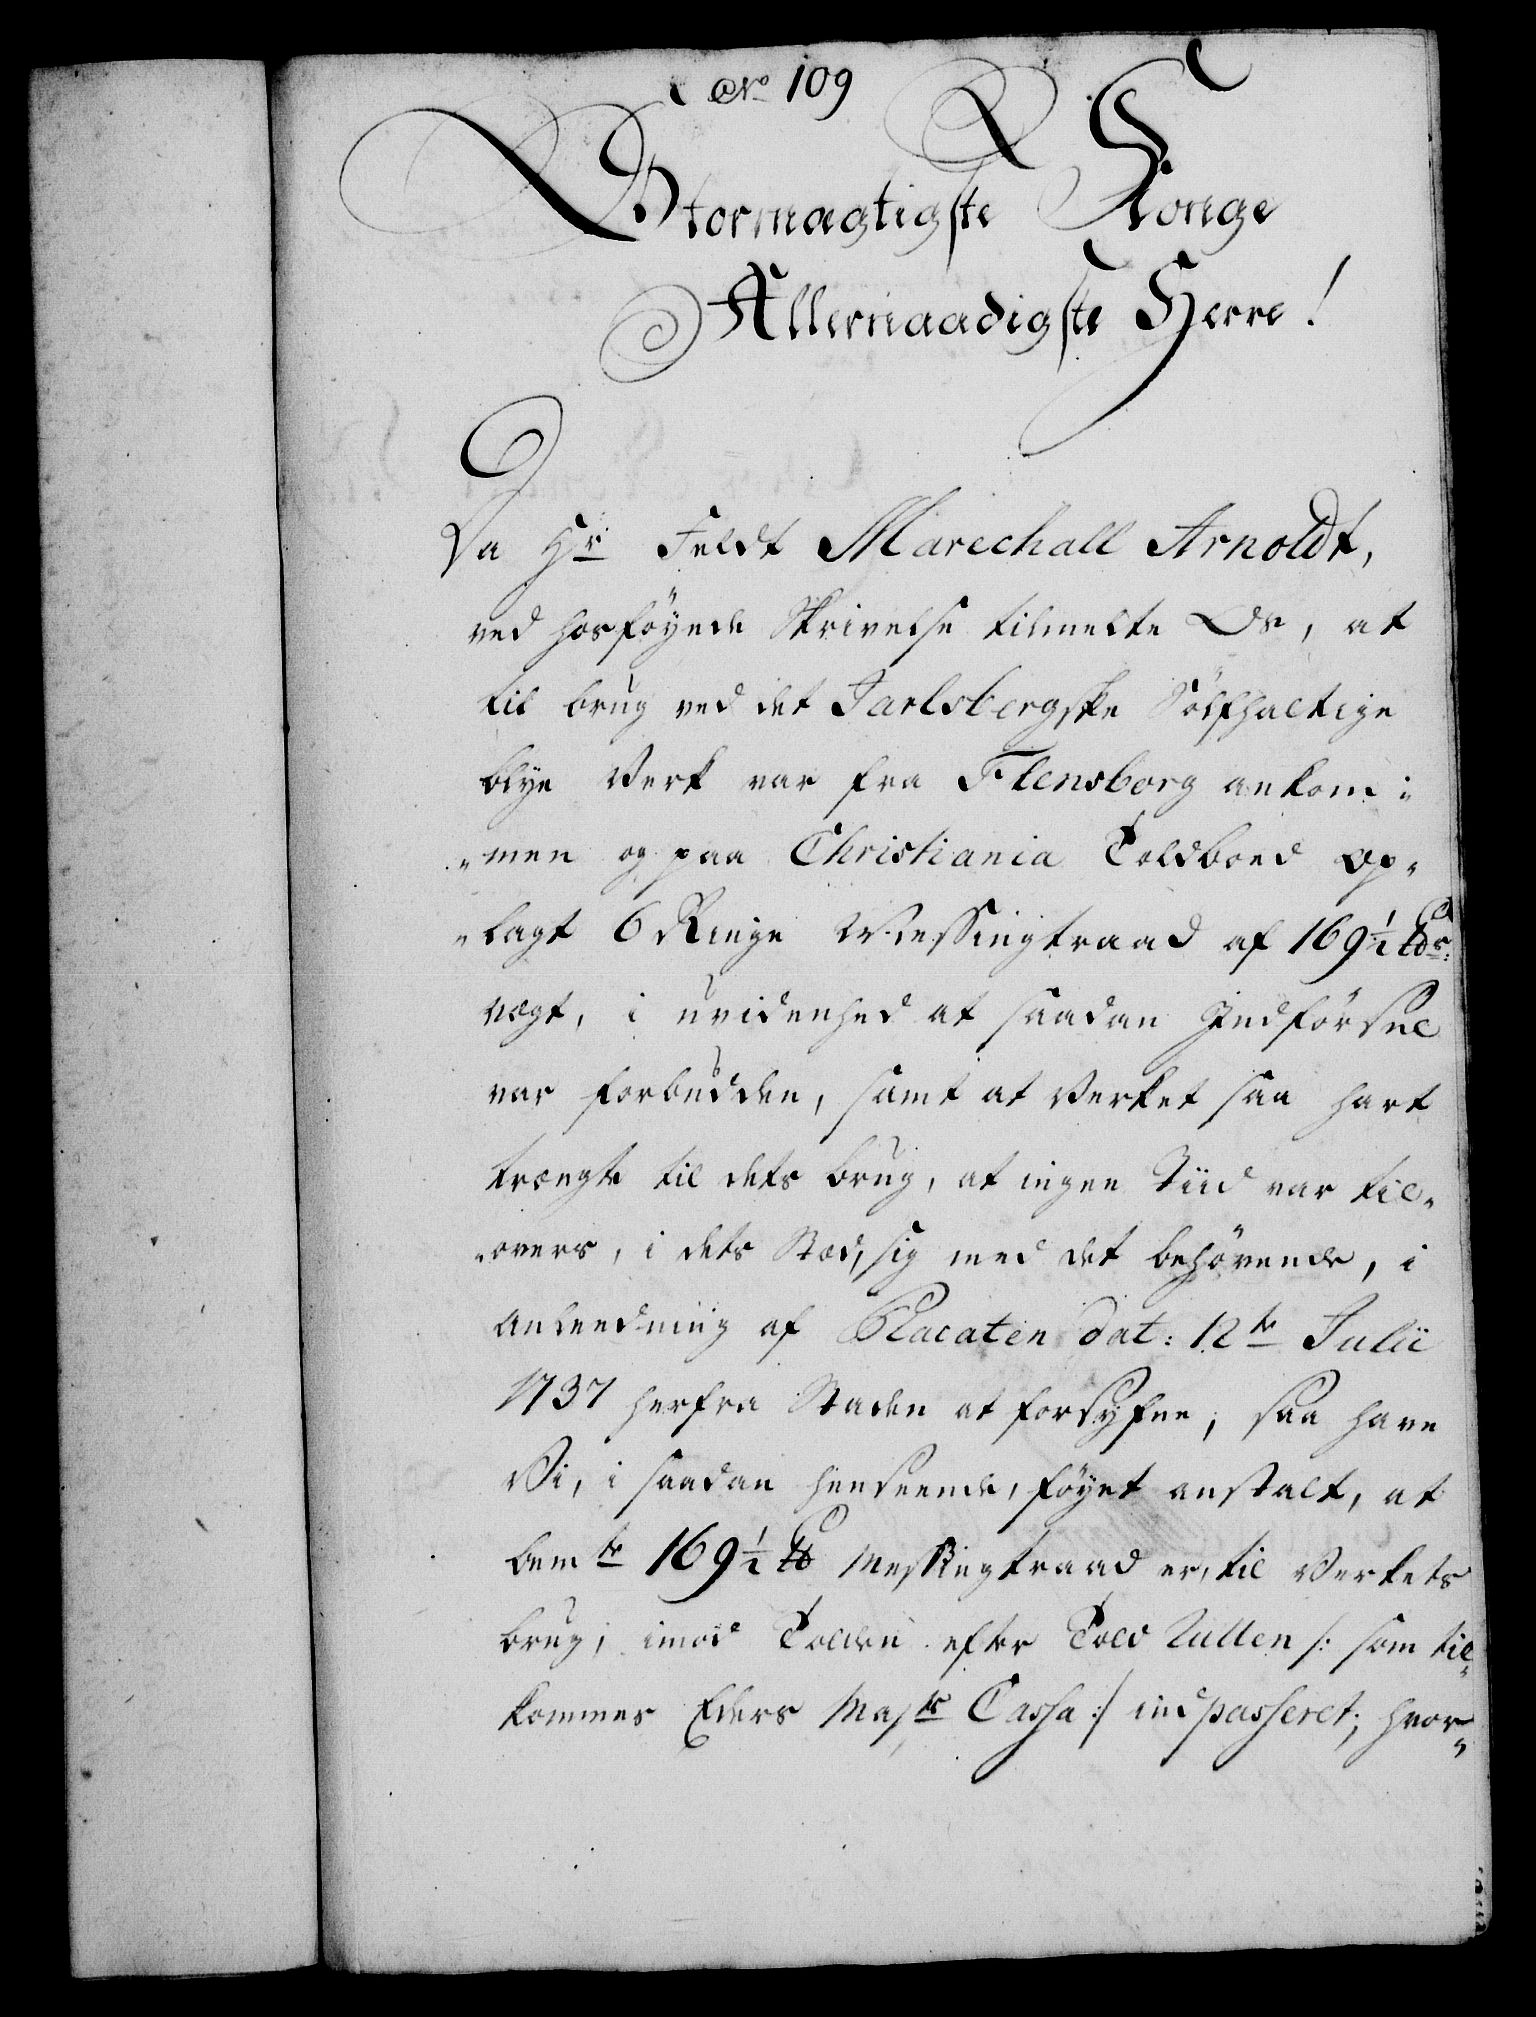 No 109
Stormægtigste Konge
Allernaadigste Herre!
Da Hr Feldt Marechall Arnoldt,
ved hosföyede Skrivelse tilmelte Os, at
til brug ved det Jarlsbergske Sölfhaltige
blye Verk var fra Flensborg ankom-
-men og paa Christiania Toldboed op-
-lagt 6 Ringe Messingtraad af 169½ ℔r:
vegt, i uvidenhed at saadan Indförsel
var forbudden, samt at Verket saa hart
trængte til dets brug, at ingen Tiid var til-
-overs, i dets Sted, sig med det behövende, i
anleedning af Placaten dat: 12te Julii
1737 herfra Staden at forsyfne, saa have
Vi, i saadan henseende, föyet anstalt, at
bemte 169½ ℔ Messingtraad er, til Verkets
brug, imod Tolden efter Told Rullen /: som til-
kommer Eders Majts Cassa :/ indpasseret; hvor-